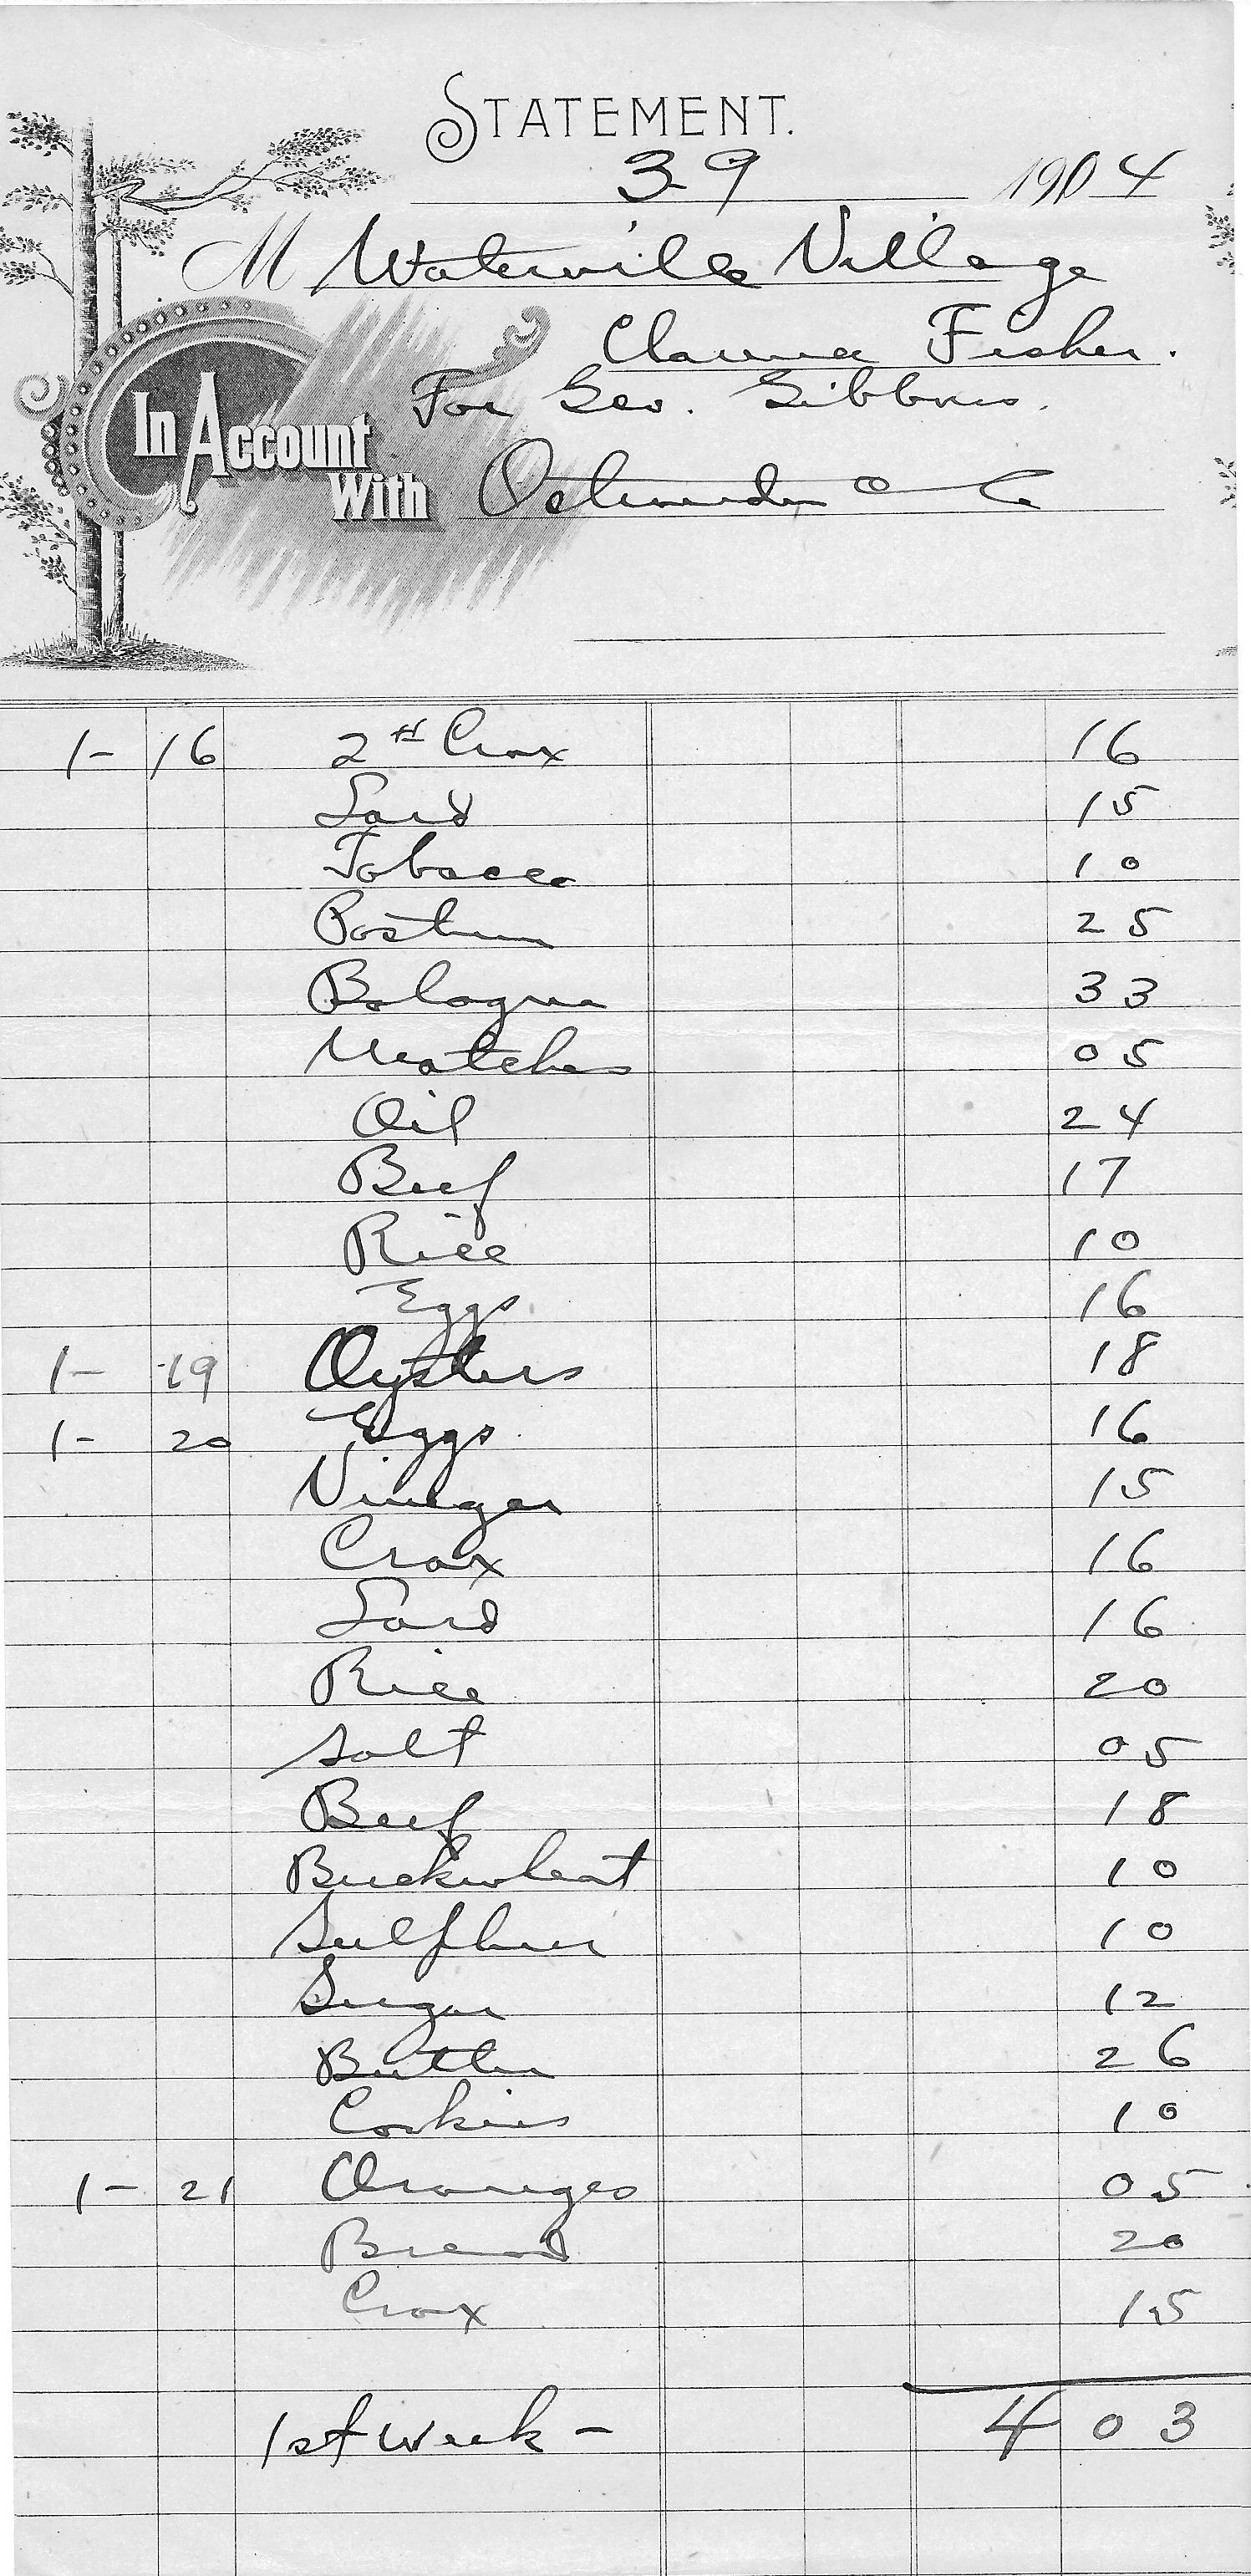 STATEMENT.
3-9 1904
M Waterville Village
Clarence Fisher.
For Geo. Gibbons.
In Account With
1- 16 2# Crax 16
Lard 15
Tobacco 10
Postum 25
Bologna 33
Matches 05
Oil 24
Beef 17
Rice 10
Eggs 16
1- 19 Oysters 18
1- 20 Eggs 16
Vinegar 15
Crax 16
Lard 16
Rice 20
Salt 05
Beef 18
Buckwheat 10
Sulphur 10
Sugar 12
Butter 26
Cookies 10
1- 21 Oranges 05
Bread 20
Crax 15
1st Week - 4 03